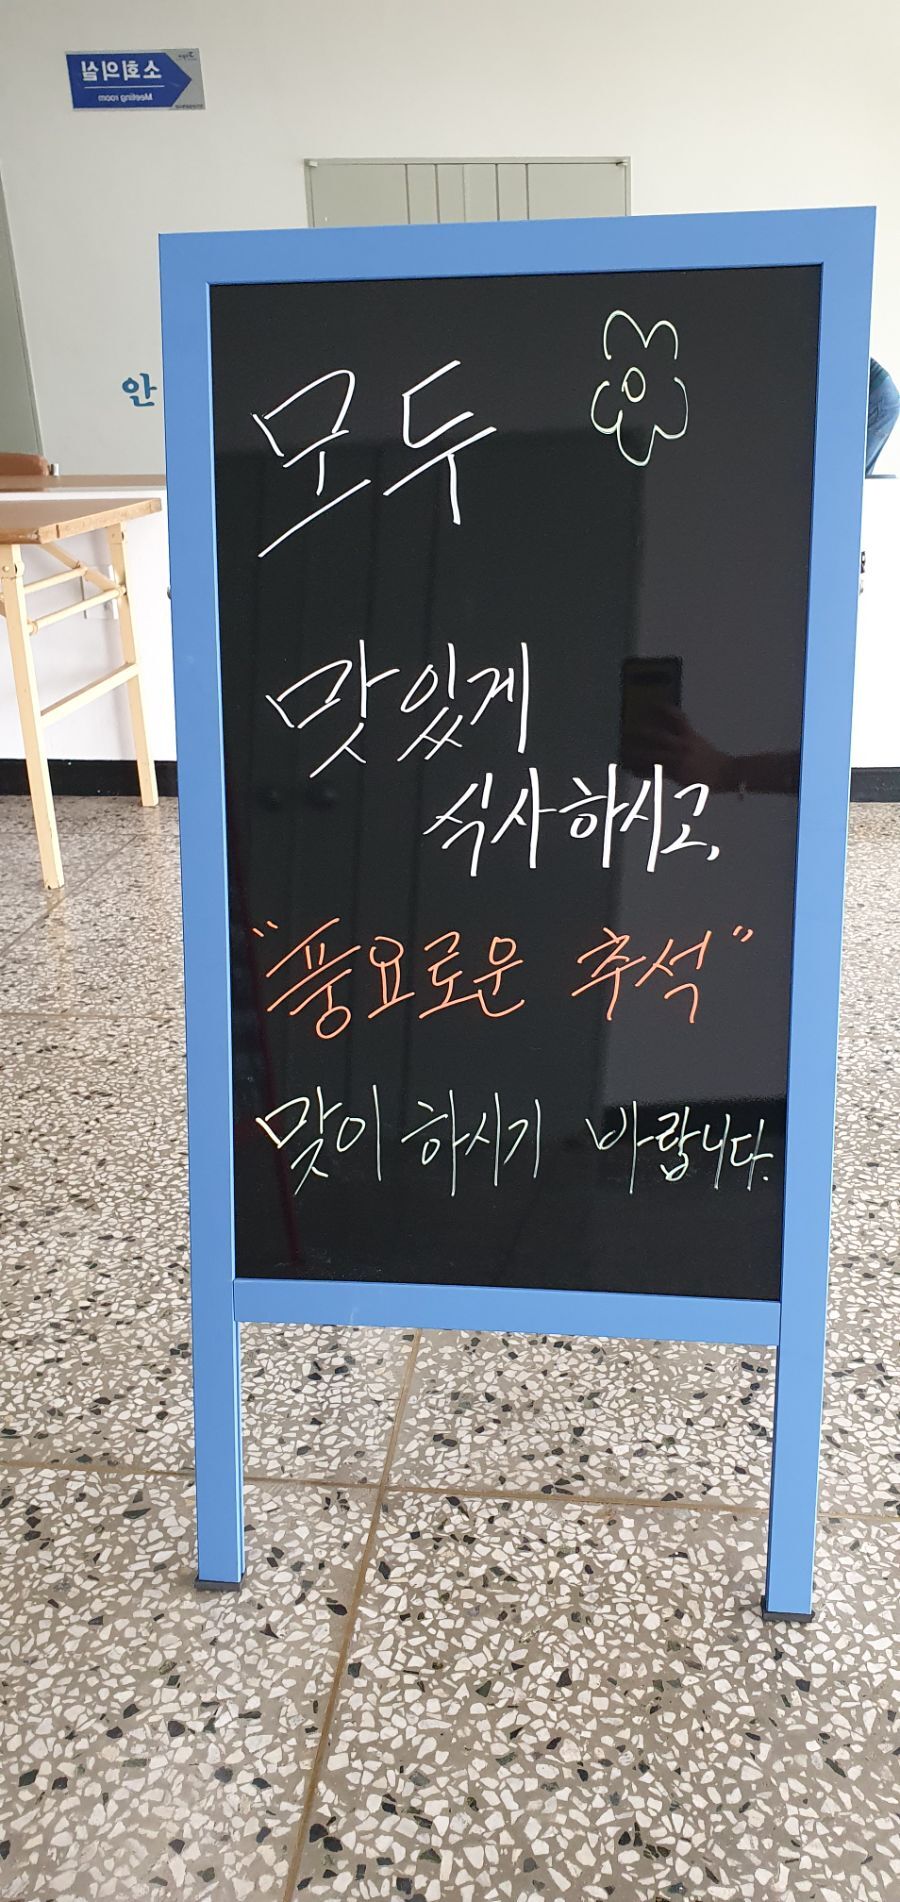 소회의실
Meeting room
안
모두
맛있게
식사하시고,
"풍요로운 추석"
맞이 하시기 바랍니다.